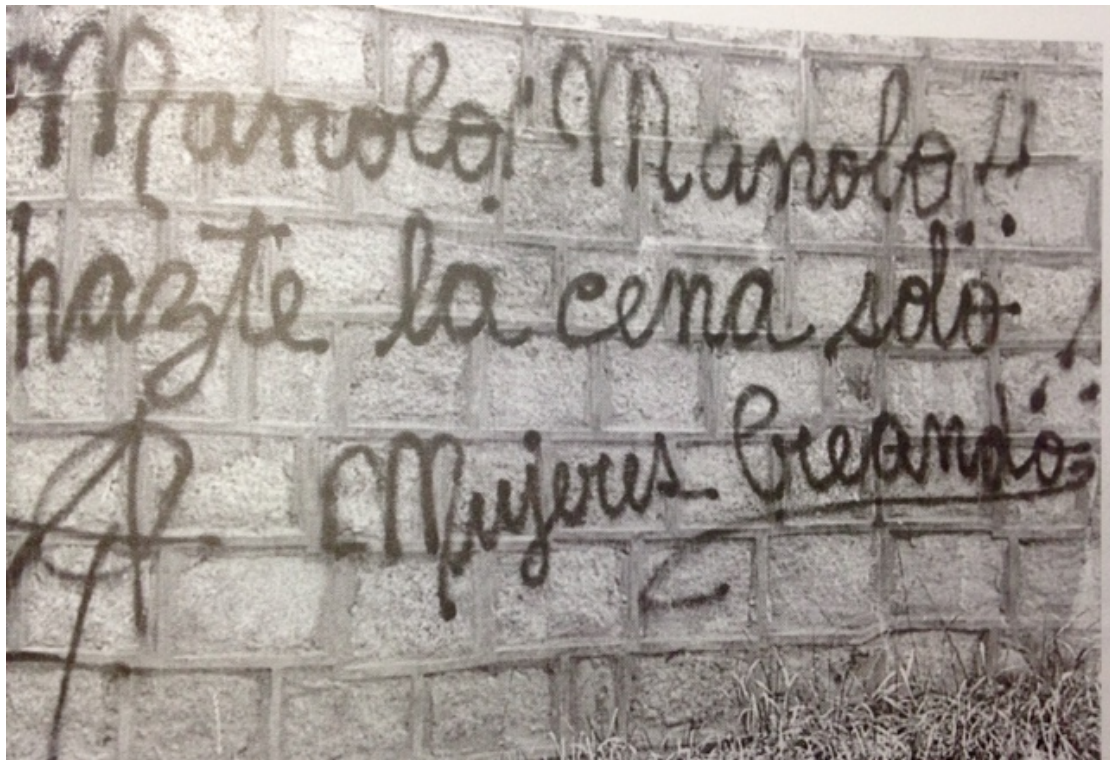 Manolo! Manolo!!
hazte la cena solo!
Mujeres Creando